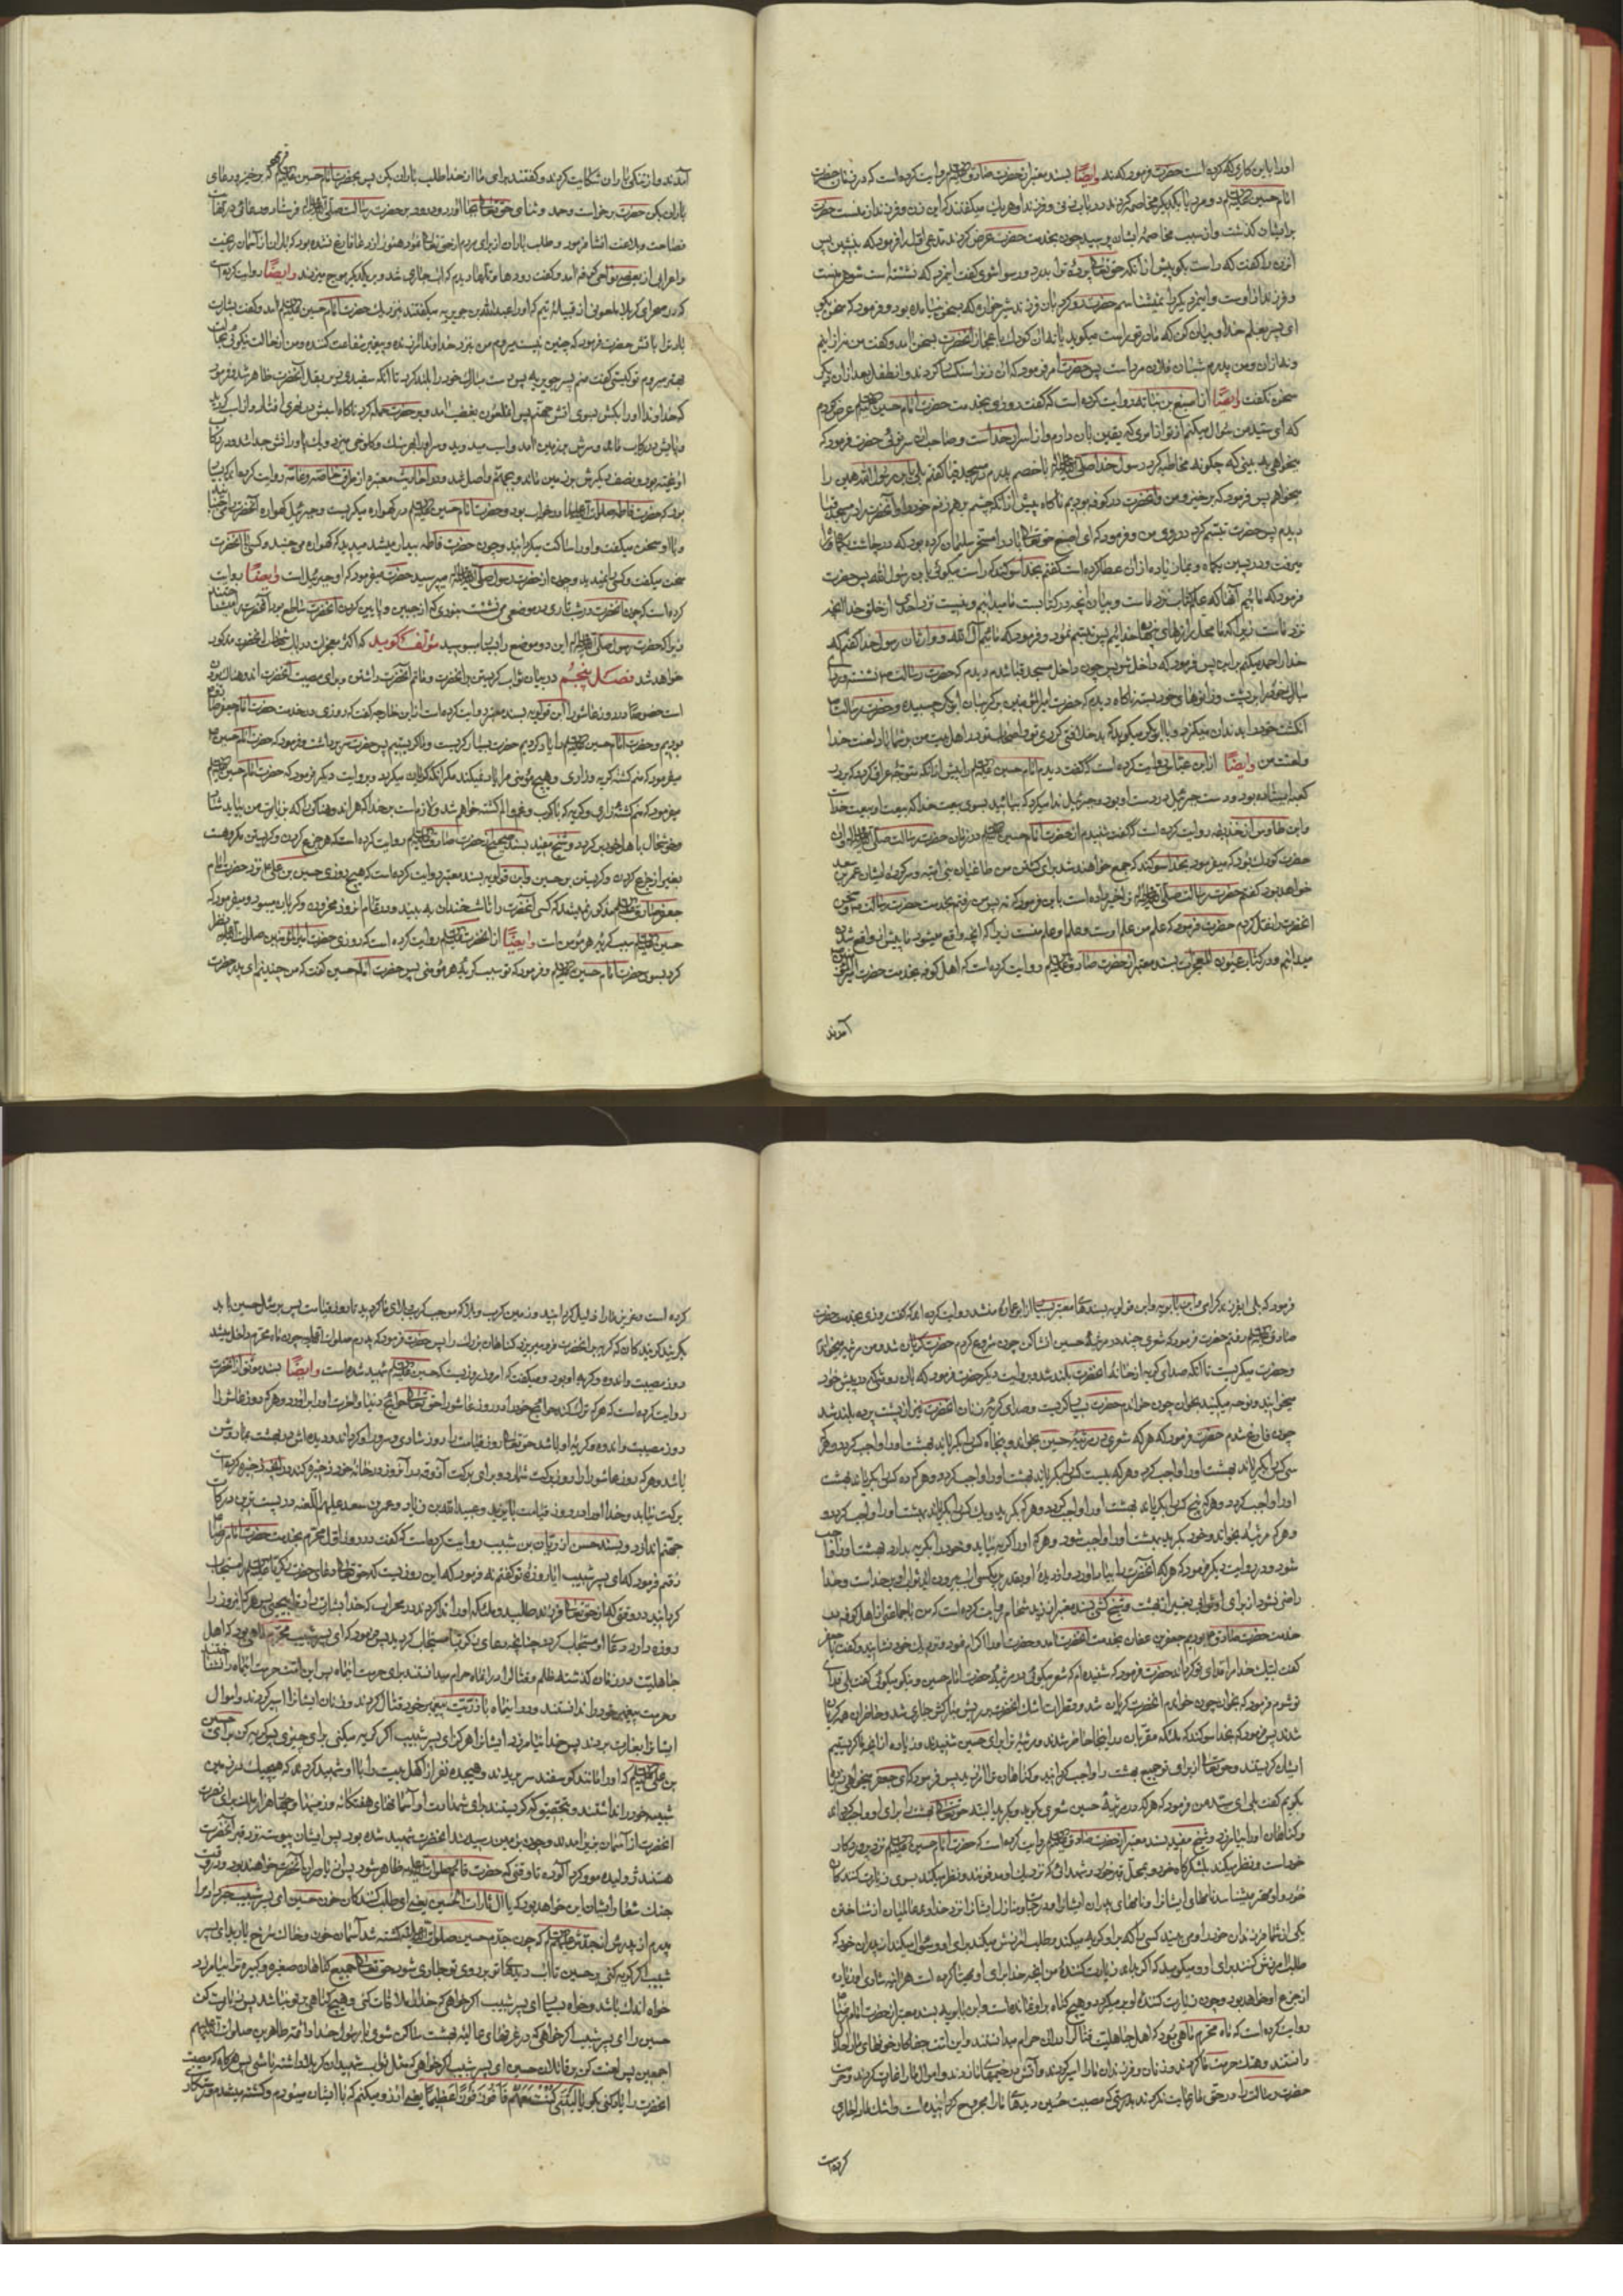 او را باین کاری که کرده است حضرت فرمود که نه وایضًا بسند معتبر از حضرت صادق روایت کرده است که در زمان حضرت
امام حسین دو مرد با یکدیگر مخاصمه کردند در باب زنی و فرزند او هر یک میگفتند که این زن و فرزند از منست حضرت
برایشان گذشت و از سبب مخاصمه ایشان پرسید چون بخدمت حضرت عرض کردند مدعی اول را فرمود که بنشین پس
از زن که گفت که راست بگو پیش از آنکه حق تعالی پرده تو را بدرد و رسوا شوی گفت این مرد که نشسته است شوهر منست
و فرزند از اوست و این مرد دیگر را نمیشناسم حضرت رو کرد بان فرزند شیرخواره که بسخن نیامده بود و فرمود که سخن بگو
ای پسر بعلم خدا و بیان کن که مادر تو راست میگوید یا نه آن کودک باعجاز آنحضرت بسخن آمد و گفت من نه از اینم
و نه از آن و من پدرم شبان فلان مرد است پس حضرت امر فرمود که آن زن را سنگسار کردند و آن طفل بعد از آن دیگر
سخن نگفت وایضًا از اصبغ بن نباته روایت کرده است که گفت روزی بخدمت حضرت امام حسین عرض کردم
که ای سید من سوال میکنم از تو از امری که یقین بان دارم و از اسرار خداست و صاحب آن سر توئی حضرت فرمود که
میخواهی به بینی که چگونه مخاطبه کرد رسول خدا با خصم پدرم در مسجد قبا گفتم بلی یابن رسول الله همین را
میخواهم پس فرمود که برخیز و من و آنحضرت در کوفه بودیم ناگاه پیش از آنکه چشم بر هم زنم خود را و آنحضرت را در مسجد قبا
دیدم پس حضرت تبسم کرد در روی من و فرمود که ای اصبغ حق تعالی باد را مسخر سلیمان کرده بود که در چاشت یکماهه راه
میرفت و در پسین یکماه و بما زیاده از آن عطا کرده است گفتم بخدا سوگند که راست میگوئی یابن رسول الله پس حضرت
فرمود که مائیم آنها که علم کتاب نزد ماست و بیان آنچه در کتابست ما میدانیم و نیست نزد احدی از خلق خدا آنچه
نزد ماست زیرا که ما محل رازهای پنهان خدائیم پس تبسم نمود و فرمود که مائیم آل الله و وارثان رسول خدا گفتم که
خدا را حمد میکنم بر این پس فرمود که داخل شو پس چون داخل مسجد قبا شدم دیدم که حضرت رسالت نشسته و ردای
انگشت خود را بدندان میگزد و با ابوبکر میگوید که بد خلافتی کردی تو و اصحاب تو در اهل بیت من بر شما باد لعنت خدا
و لعنت من وایضًا از ابن عباس روایت کرده است که گفت دیدم امام حسین را پیش از آنکه متوجه عراق گردد که بر در
کعبه ایستاده بود و دست جبرئیل در دست او بود و جبرئیل ندا میکرد که بیائید بسوی بیعت خدا که بیعت او بیعت خداست
و ابن طاوس از حذیفه روایت کرده است که گفت شنیدم از حضرت امام حسین در زمان حضرت رسالت و آن
حضرت کودک بود که میفرمود بخدا سوگند که جمع خواهند شد برای کشتن من طاغیان بنی امیه و سرکرده ایشان عمر بن سعد
خواهد بود گفتم حضرت رسالت ترا خبر داده است باین فرمود که نه پس من رفتم بخدمت حضرت رسالت و سخن
آنحضرت را نقل کردم حضرت فرمود که علم من علم اوست و علم او علم منست زیرا که آنچه واقع میشود ما پیش از واقع شدن
میدانیم و در کتاب عیون المعجزات بسند معتبر از حضرت صادق روایت کرده است که اهل کوفه بخدمت حضرت امیر المؤمنین
آمدند
آمدند و از تنگی باران شکایت کردند و گفتند برای ما از خدا طلب باران بکن پس بحضرت امام حسین فرمود که برخیز و دعای
باران بکن حضرت برخواست و حمد و ثنای حق تعالی بجا آورد و درود بر حضرت رسالت فرستاد و دعائی در نهایت
فصاحت و بلاغت انشا فرمود و طلب باران از برای مردم از حق تعالی نمود هنوز از دعا فارغ نشده بود که باران از آسمان ریخت
و اعرابی از بعضی نواحی کوفه آمد و گفت رودها و تلها را دیدم که آب جاری شد و بر یکدیگر موج میزدند وایضًا روایت کرده است
که در صحرای کربلا ملعونی از قبیله تیم که او را عبد الله بن جویریه میگفتند بنزدیک حضرت امام حسین آمد و گفت بشارت
باد ترا بآتش حضرت فرمود که چنین نیست میروم من بنزد خداوند آمرزنده و پیغمبر شفاعت کننده و من از حالت نیکوئی بحالت
بهتر میروم تو کیستی گفت منم پسر جویریه پس دست مبارک خود را بلند کرد تا آنکه سفیدی زیر بغل آنحضرت ظاهر شد و فرمود
که خداوندا او را بکش بسوی آتش جهنم پس آن ملعون بغضب آمد و بر حضرت حمله کرد ناگاه اسبش در نهری افتاد و از اسب گردید
و پایش در رکاب ماند و سرش بر زمین آمد و اسب میدوید و سر او را بهر سنگ و کلوخی میزد و یک پا و رانش جدا شد و در رکاب
آویخته بود و نصف دیگرش بر زمین ماند و بجهنم واصل شد و در احادیث معتبره از طرق خاصه و عامه روایت کرده‌اند که بسیار
بود که حضرت فاطمه در خواب بود و حضرت امام حسین در گهواره میگریست و جبرئیل گهواره آنحضرت را می‌جنبانید
و با او سخن میگفت و او را ساکت میگردانید و چون حضرت فاطمه بیدار میشد میدید که گهواره می‌جنبد و کسی با آنحضرت
سخن میگفت و کسی را نمیدید و چون از حضرت رسول میپرسید حضرت میفرمود که او جبرئیل است وایضًا روایت
کرده است که چون آنحضرت در شب تاری در موضعی می نشست بنوری که از جبین و پایین گردن آنحضرت ساطع بود آنحضرت را میشناختند
زیرا که حضرت رسول این دو موضع را بسیار میبوسید مؤلف گوید که اکثر معجزات در باب شهادت آنحضرت مذکور
خواهد شد فصل پنجم در بیان ثواب گریستن بر آنحضرت و ماتم آنحضرت داشتن و برای مصیبت آنحضرت اندوهناک بودن
است خصوصًا در روز عاشورا ابن قولویه بسند معتبر روایت کرده است از ابن خارجه که گفت روزی در خدمت حضرت امام جعفر صادق
بودیم و حضرت امام حسین را یاد کردیم حضرت بسیار گریست و ما گریستیم پس حضرت سر برداشت و فرمود که حضرت امام حسین
میفرمود که منم کشته گریه و زاری و هیچ مؤمنی مرا یاد نمیکند مگر آنکه گریان میگردد و بروایت دیگر فرمود که حضرت امام حسین
میفرمود که منم کشته زاری و گریه که با کرب و غم و الم کشته خواهم شد و لازم است بر خدا که هر اندوهناکی را که بزیارت من بیاید شاد
و خوشحال باهل خود برگرداند و شیخ مفید بسند صحیح از حضرت صادق روایت کرده است که هر جزع کردن و گریستن مکروهست
بغیر از جزع کردن و گریستن بر حسین و ابن قولویه بسند معتبر روایت کرده است که هیچ روزی حسین بن علی نزد حضرت امام
جعفر صادق مذکور نمیشد که کسی آنحضرت را تا شب خندان به بیند و در تمام آن روز محزون و گریان میبود و میفرمود که
حسین سبب گریه هر مؤمن است وایضًا از آنحضرت روایت کرده است که روزی حضرت امیر المؤمنین نظر
کرد بسوی حضرت امام حسین و فرمود که تو سبب گریه هر مؤمنی پس حضرت امام حسین گفت که من چنینم ای پدر حضرت
فرمود که بلی ای فرزند گرامی و ابن بابویه و ابن قولویه بسندهای معتبر بسیار از ابو عماره منشد روایت کرده اند که گفت روزی بخدمت حضرت
صادق رفتم حضرت فرمود که شعری چند در مرثیه حسین انشا کن چون شروع کردم حضرت گریان شد و من مرثیه میخواندم
و حضرت میگریست تا آنکه صدای گریه از خانه آنحضرت بلند شد و بروایت دیگر حضرت فرمود که بآن روشی که در پیش خود
میخوانید و نوحه میکنید بخوان چون خواندم حضرت بسیار گریست و صدای گریه زنان آنحضرت نیز از پشت پرده بلند شد
چون فارغ شدم حضرت فرمود که هر که شعری در مرثیه حسین بخواند و پنجاه کس را بگریاند بهشت او را واجب گردد و هر که
سی کس را بگریاند بهشت او را واجب گردد و هر که بیست کس را بگریاند بهشت او را واجب گردد و هر که ده کس را بگریاند بهشت
او را واجب گردد و هر که پنج کس را بگریاند بهشت او را واجب گردد و هر که یک کس را بگریاند بهشت او را واجب گردد و
و هر که مرثیه بخواند و خود بگرید بهشت او را واجب شود و هر که او را گریه نیاید و خود را بگریه بدارد بهشت او را واجب
شود و در روایت دیگر فرمود که هر که آنحضرت را بیاد آورد و از دیده او بقدر پر مگسی آب بیرون آید ثواب او بر خداست و خدا
راضی نشود از برای او ثوابی بغیر از بهشت و شیخ کشی بسند معتبر از زید شحام روایت کرده است که من با جماعتی از اهل کوفه در
خدمت حضرت صادق بودیم جعفر بن عفان بخدمت آنحضرت آمد و حضرت او را اکرام نمود و نزدیک خود نشانید و گفت یا جعفر
گفت لبیک خدا مرا فدای تو گرداند حضرت فرمود که شنیده ام که شعر میگوئی در مرثیه حضرت امام حسین و نیکو میگوئی گفت بلی فدای
تو شوم فرمود که بخوان چون خواندم آنحضرت گریان شد و قطرات اشک آنحضرت بر ریش مبارکش جاری شد و حاضران همه گریان
شدند پس فرمود که بخدا سوگند که ملائکه مقربان در اینجا حاضر شدند و مرثیه ترا برای حسین شنیدند و زیاده از آنچه ما گریستیم
ایشان گریستند و حق تعالی از برای تو جمیع بهشت را واجب گردانید و گناهان ترا آمرزید پس فرمود که ای جعفر میخواهی زیاده
بگویم گفت بلی ای سید من فرمود که هر که در مرثیه حسین شعری بگوید و بگرید البته حق تعالی بهشت را برای او واجب گرداند
و گناهان او را بیامرزد و شیخ مفید بسند معتبر از حضرت صادق روایت کرده است که حضرت امام حسین نزد پروردگار
خود است و نظر میکند بلشکرگاه خود و بمحل قبر خود و شهدائی که نزدیک او مدفونند و نظر میکند بسوی زیارت کنندگان
خود و او بهتر میشناسد نامهای ایشان را و نامهای پدران ایشان را و درجات و منازل ایشان را نزد خداوند عالمیان از شناختن
یکی از شما فرزندان خود را و می بیند کسی را که بر او گریه میکند و طلب آمرزش میکند برای او و سؤال میکند از پدران خود که
طلب آمرزش کنند برای او و میگوید که اگر بداند زیارت کننده من آنچه خدا برای او مهیا کرده است هر آینه شادی او زیاده
از جزع او خواهد بود و چون زیارت کننده او بر میگردد هیچ گناه بر او نمانده است و ابن بابویه بسند معتبر از حضرت امام رضا
روایت کرده است که ماه محرم ماهی بود که اهل جاهلیت قتال را در آن حرام میدانستند و این امت جفاکار خونهای ما را حلال
دانستند و هتک حرمت ما کردند و زنان و فرزندان ما را اسیر کردند و آتش در خیمه‌های ما زدند و اموال ما را غارت کردند و حرمت
حضرت رسالت را در حق ما رعایت نکردند بدرستی که مصیبت حسین دیدهای ما را مجروح گردانیده است و اشک ما را جاری
کرده است
کرده است و عزیز ما را ذلیل گردانید و زمین کرب و بلا که موجب کرب و بلای ما گردید تا روز قیامت پس بر مثل حسین باید
بگریند گریه کنندگان که گریه بر آنحضرت فرو میریزد گناهان بزرگ را پس حضرت فرمود که پدرم چون ماه محرم داخل میشد
روز مصیبت و اندوه و گریه او بود و میگفت که امروز روزیست که حسین شهید شده است وایضًا بسند موثق از آنحضرت
روایت کرده است که هر که ترک کند حوائج خود را در روز عاشورا حق تعالی حوائج دنیا و آخرت او را برآورد و هر که روز عاشورا
روز مصیبت و اندوه و گریه او باشد حق تعالی روز قیامت را روز شادی و سرور او گرداند و دیده اش در بهشت بما روشن
باشد و هر که روز عاشورا را روز برکت شمارد و برای برکت آذوقه در آن روز در خانه خود ذخیره کند در آنچه ذخیره کرده است
برکت نیابد و خدا او را در روز قیامت با یزید و عبید الله بن زیاد و عمر بن سعد علیهم اللعنه در پست‌ترین درکات
جهنم اندازد و بسند حسن از ریان بن شبیب روایت کرده است که گفت در روز اول محرم بخدمت حضرت امام رضا
رفتم فرمود که ای پسر شبیب آیا روزه تو گفتم نه فرمود که این روزیست که حق تعالی دعای حضرت زکریا را مستجاب
گردانید در وقتی که از حق تعالی فرزند طلبید و ملائکه او را ندا کردند در محراب که خدا بشارت میدهد ترا بیحیی پس هر که این روز را
روزه دارد دعای او مستجاب گردد چنانچه دعای زکریا مستجاب گردید پس فرمود که ای پسر شبیب محرم ماهی بود که اهل
جاهلیت در زمان گذشته ظلم و قتال را در این ماه حرام میدانستند برای حرمت این ماه پس این امت حرمت این ماه را نشناختند
و حرمت پیغمبر خود را ندانستند و در این ماه با ذریت پیغمبر خود قتال کردند و زنان ایشان را اسیر کردند و اموال
ایشان را بغارت بردند پس خدا نیامرزد ایشان را هرگز ای پسر شبیب اگر گریه میکنی برای چیزی پس گریه کن برای حسین
بن علی که او را مانند گوسفند سر بریدند و هیجده نفر از اهل بیت او را با او شهید کردند که هیچیک در زمین
شبیه خود را نداشتند و بتحقیق که گریستند برای شهادت او آسمانهای هفتگانه و زمینها و چهار هزار ملک برای نصرت
آنحضرت از آسمان بزیر آمدند و چون بزمین رسیدند آنحضرت شهید شده بود پس ایشان پیوسته نزد قبر آنحضرت
هستند ژولیده مو گردآلوده تا وقتی که حضرت قائم ظاهر شود پس از یاوران آنحضرت خواهند بود و در وقت
جنگ شعار ایشان این خواهد بود که یا آل ثارات الحسین یعنی ای طلب کنندگان خون حسین ای پسر شبیب خبر داد مرا
پدرم از پدرش از جدش که چون جدم حسین کشته شد آسمان خون و خاک سرخ بارید ای پسر
شبیب اگر گریه کنی بر حسین تا آب دیده تو بر روی تو جاری شود حق تعالی جمیع گناهان صغیره و کبیره ترا بیامرزد
خواه اندک باشد و خواه بسیار ای پسر شبیب اگر خواهی که خدا را ملاقات کنی و هیچ گناهی بر تو نباشد پس زیارت کن
حسین را ای پسر شبیب اگر خواهی که در غرفهای عالیه بهشت ساکن شوی با رسول خدا و ائمه طاهرین صلوات الله علیهم
اجمعین پس لعنت کن بر قاتلان حسین ای پسر شبیب اگر خواهی که مثل ثواب شهیدان کربلا داشته باشی پس هرگاه که مصیبت
آنحضرت را یاد کنی بگو یا لیتنی کنت معهم فافوز فوزا عظیما یعنی آرزو میکنم که با ایشان میبودم و کشته میشدم و رستگار